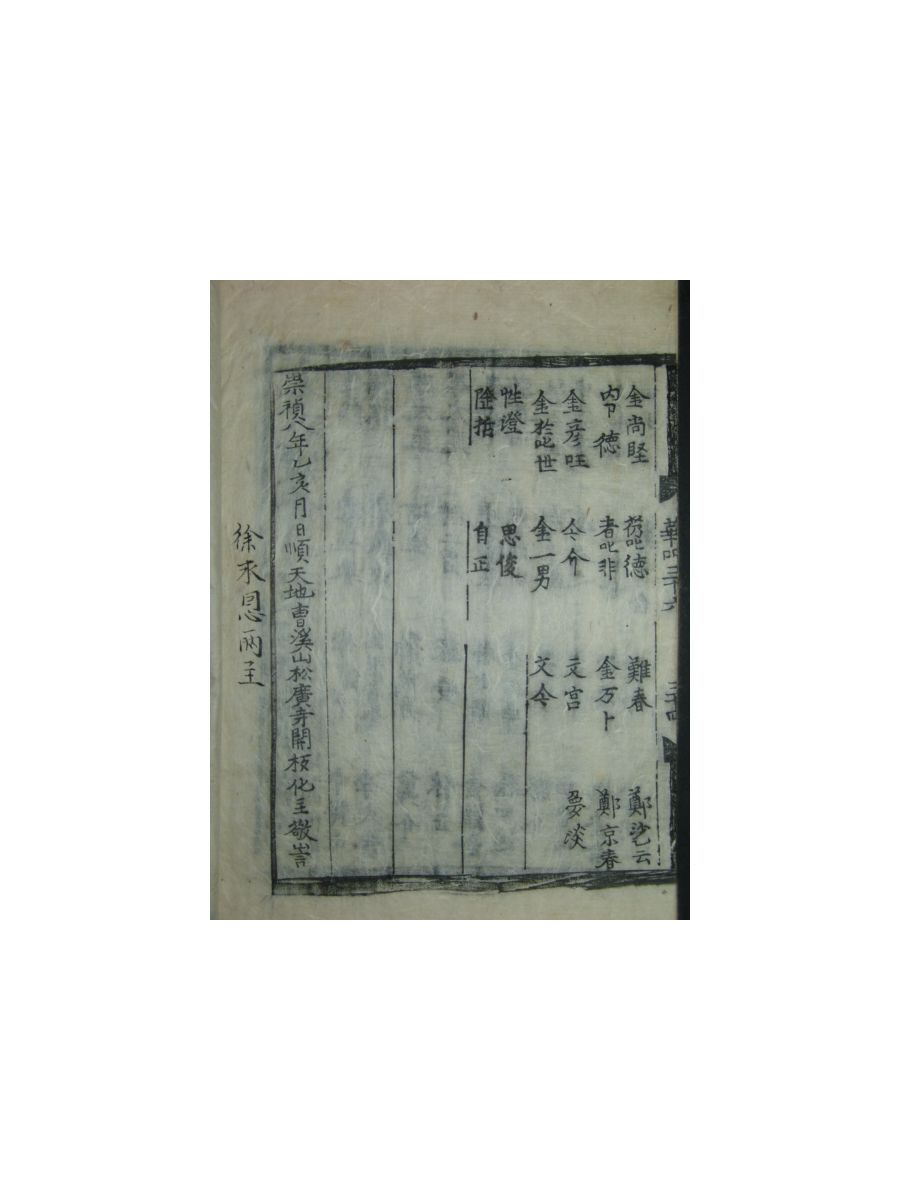 金尚堅 德 難春 鄭 云
德 者叱非 金万卜 鄭京春
金彦旺 今介 文宮 夢淡
金 世 金一男 文今
性澄 思俊
陸 自正
崇禎八年乙亥月日順天地曺溪山松廣寺開板化主敬
徐 恩兩主